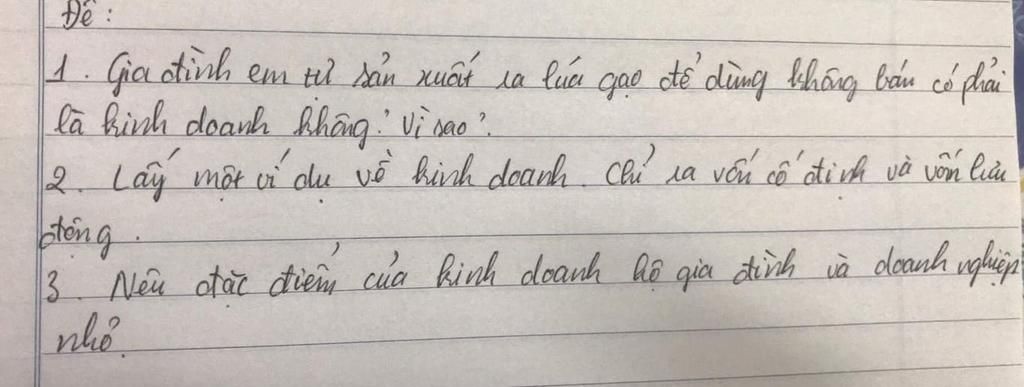 Đề :
1. Gia đình em tự sản xuất ra lúa gạo để dùng không bán có phải
là kinh doanh không? Vì sao?
2. Lấy một ví dụ về kinh doanh. Chỉ ra vốn cố định và vốn lưu
động.
3. Nêu đặc điểm của kinh doanh hộ gia đình và doanh nghiệp
nhỏ.